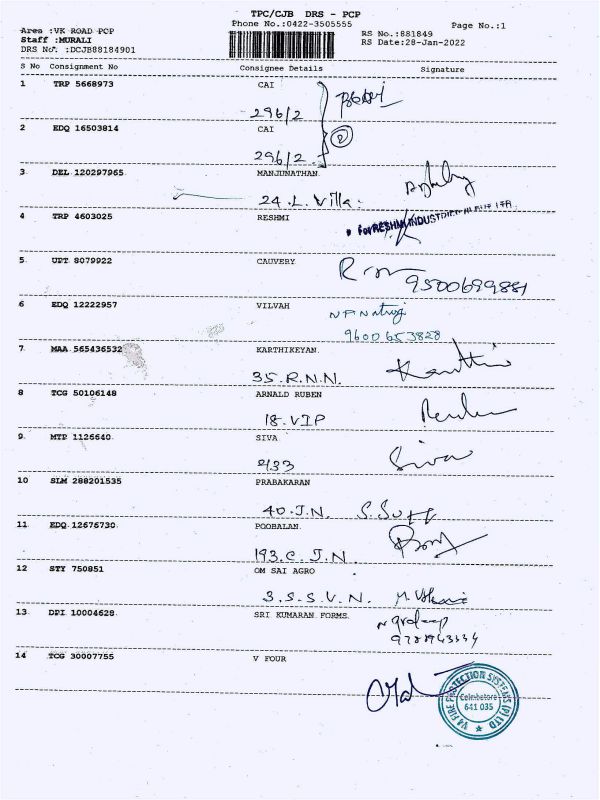 TPC/CJB DRS - PCP
Phone No.:0422-3505555
Page No.:1
Area :VK ROAD PCP
Staff :MURALI
DRS No. :DCJB88184901
RS No.:881849
RS Date:28-Jan-2022
S No Consignment No Consignee Details Signature
1 TRP 5668973 CAI
296/2
2 EDQ 16503814 CAI
296/2
3 DEL 120297965 MANJUNATHAN
24.L.Villa.
4 TRP 4603025 RESHMI
For RESHMI INDUSTRIES
5 UPT 8079922 CAUVERY
9500699881
6 EDQ 12222957 VILVAH
9600653828
7 MAA 565436532 KARTHIKEYAN
35.R.N.N.
8 TCG 50106148 ARNALD RUBEN
18.VIP
9 MTP 1126640 SIVA
433 Siva
10 SLM 288201535 PRABAKARAN
40.J.N.
11 EDQ 12676730 POOBALAN
193.C.J.N.
12 STY 750851 OM SAI AGRO
3.S.S.V.N.
13 DPI 10004628 SRI KUMARAN FORMS
14 TCG 30007755 V FOUR
V4 FIRE PROTECTION SYSTEMS (P) LTD
Coimbatore
641 035